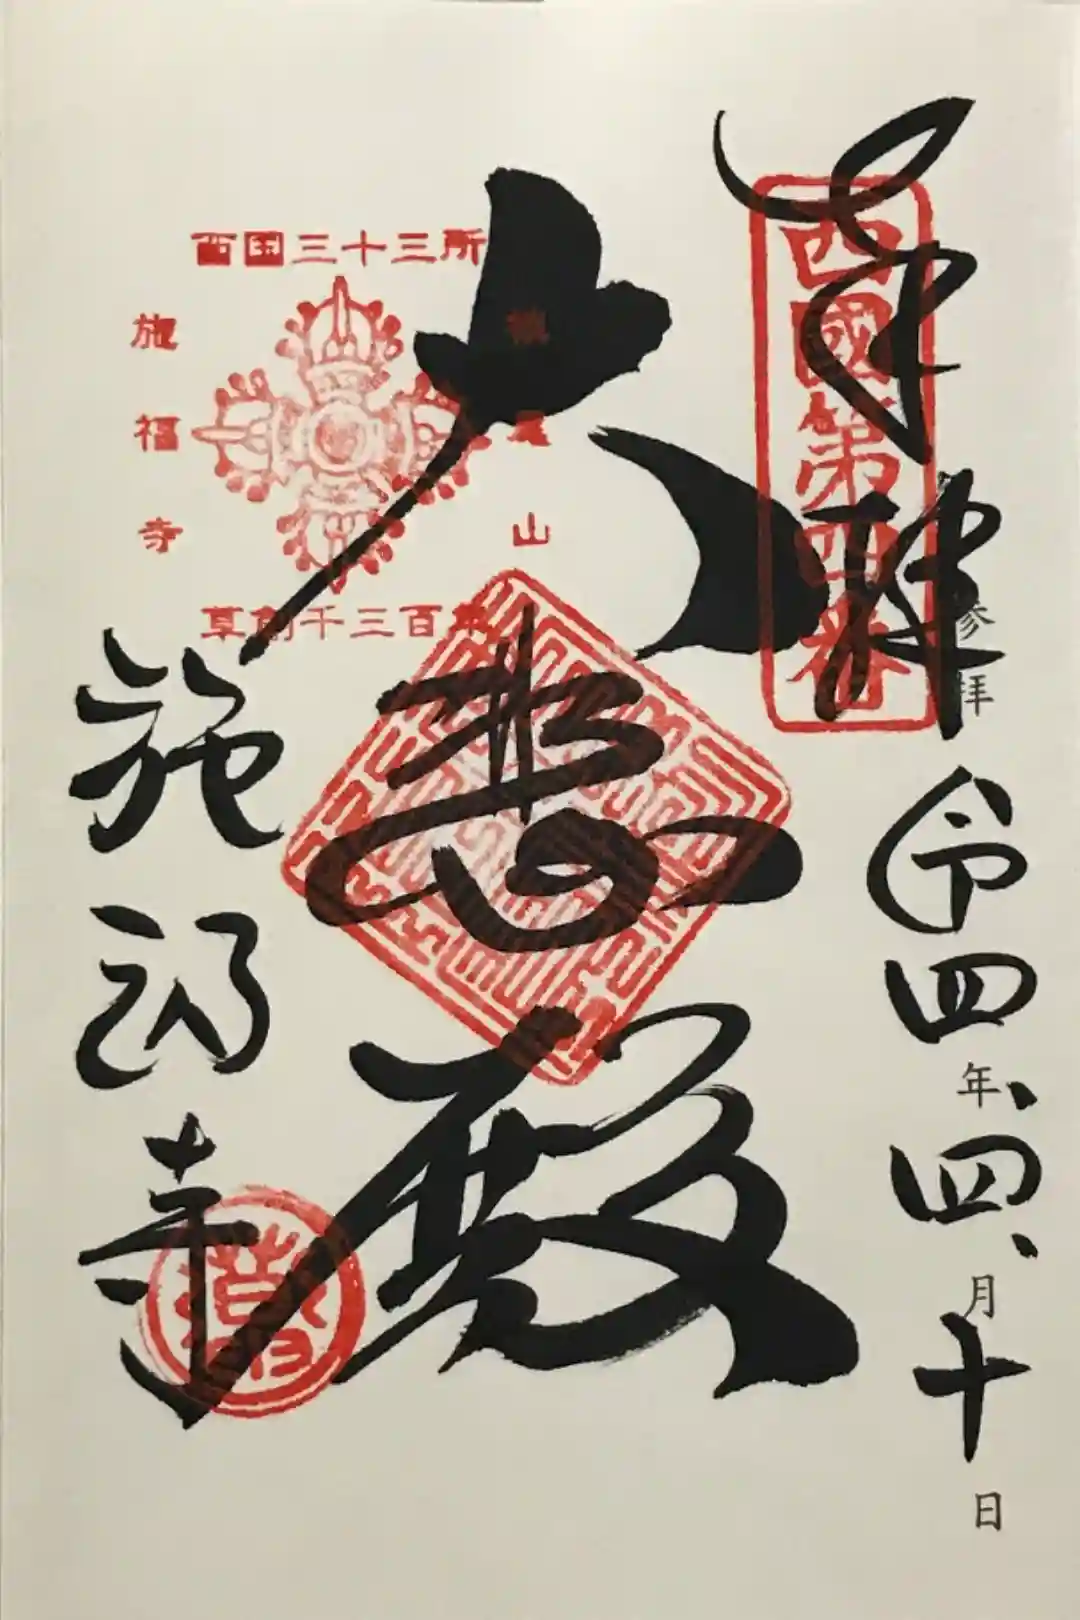 奉拝
西國第四番
参拝
令四年、四、月十日
大悲殿
西国三十三所
槇尾山
施福寺
草創千三百年
施福寺